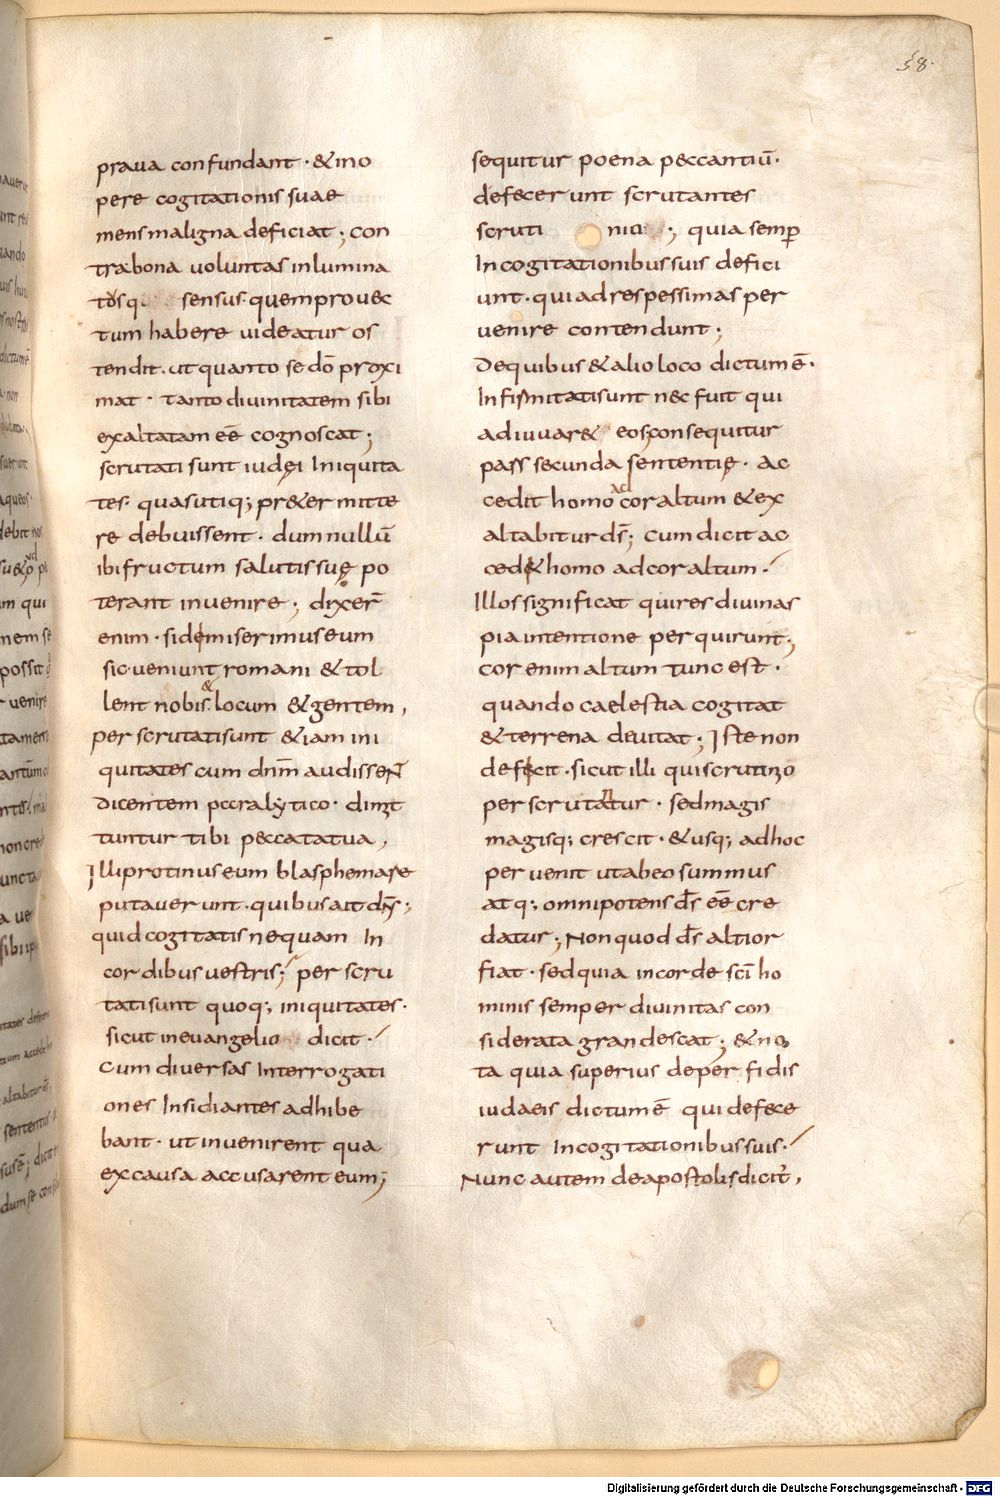 58.
praua confundant · & ino
pere cogitationis suae
mens maligna deficiat ; con
tra bona uoluntas inlumina
tos sensus · quem prouec
tum habere uideatur os
tendit . ut quanto se dō proxi
mat · tanto diuinitatem sibi
exaltatam eē cognoscat ;
scrutati sunt iudęi Iniquita
tes · quas utiq; pr&er mitte
re debuissent · dum nullū
ibi fructum salutis suę po
terant inuenire ; dixer̄
enim · si demiserimus eum
sic · ueniunt romani & tol
lent nobis & locum & gentem ,
per scrutati sunt & iam ini
quitates cum dn̄m audissent
Dicentem paralytico · dimit
tuntur tibi peccata tua ,
Illi protinus eum blasphemare
putauerunt . quibus ait dn̄s ;
quid cogitatis nequam In
cordibus uestris ; per scru
tati sunt quoq; iniquitates ·
sicut in euangelio dicit ·
Cum diuersas Interrogati
ones Insidiantes adhibe
bant · ut inuenirent qua
ex causa accusarent eum ;
sequitur poena peccantiū ·
defecerunt scrutantes
scruti nio ; quia semp
In cogitationibus suis defici
unt · qui ad res pessimas per
uenire contendunt ;
De quibus & alio loco dictum ē ·
Infirmitati sunt nec fuit qui
adiuuar& eos ; consequitur
pass secunda sententię · ac
cedit homo ad cor altum & ex
altabitur ds̄ ; cum dicit ac
ced& homo ad cor altum ·
Illos significat qui res diuinas
pia intentione perquirunt ;
cor enim altum tunc est ·
quando caelestia cogitat
& terrena deuitat ; Iste non
deficit · sicut illi qui scrutinio
per scrutantur · sed magis
magisq; crescit · & usq; ad hoc
peruenit ut ab eo summus
atq; omnipotens ds̄ eē cre
datur ; Non quod ds̄ altior
fiat · sed quia in corde sc̄i ho
minis semper diuinitas con
siderata grandescat ; & no
ta quia superius de perfidis
iudaeis dictum ē qui defece
runt In cogitationibus suis ·
Nunc autem de apostolis dicit ,
Digitalisierung gefördert durch die Deutsche Forschungsgemeinschaft - DFG